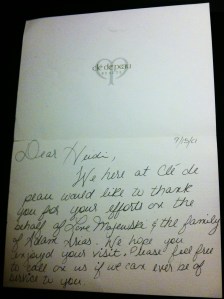 clé de peau
BEAUTÉ
Dear Heidi,
We here at Clé de
peau would like to thank
you for your efforts on the
behalf of & the family
of Adam. We hope you
enjoyed your visit. Please feel free
to call on us if we can ever be of
service to you